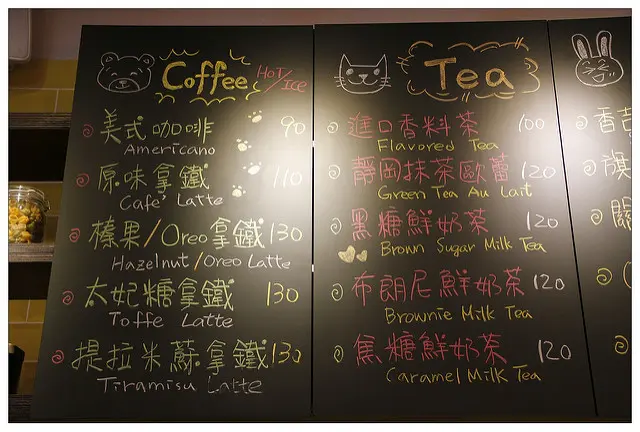 Coffee HOT/ICE
美式咖啡 90
Americano
原味拿鐵 110
Cafe' Latte
榛果/Oreo拿鐵 130
Hazelnut/Oreo Latte
太妃糖拿鐵 130
Toffe Latte
提拉米蘇拿鐵 130
Tiramisu Latte
Tea
進口香料茶 100
Flavored Tea
靜岡抹茶歐蕾 120
Green Tea Au Lait
黑糖鮮奶茶 120
Brown Sugar Milk Tea
布朗尼鮮奶茶 120
Brownie Milk Tea
焦糖鮮奶茶 120
Caramel Milk Tea
香吉
旗